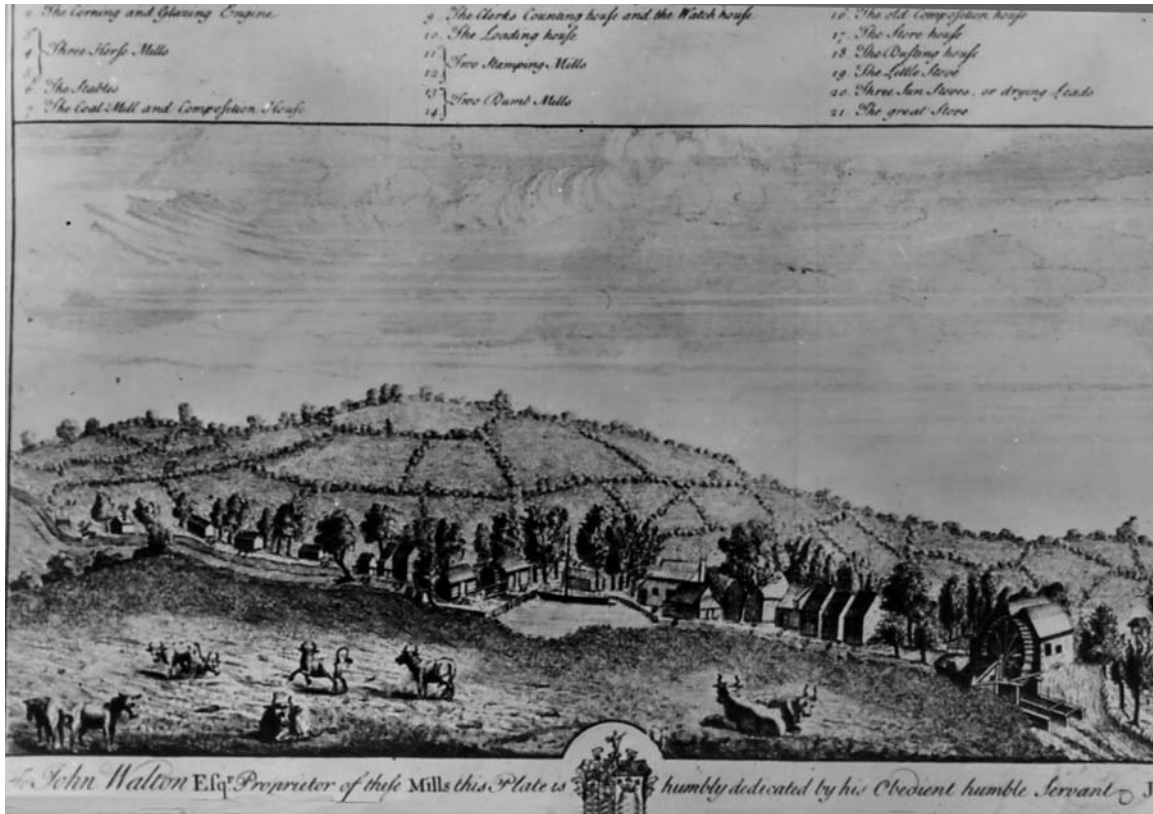 2 The Corning and Glazing Engine
3
4 Three Horſe Mills
5
6 The Stables
7 The Coal Mill and Composition Houſe
9 The Clerks Counting houſe and the Watch houſe
10. The Loading houſe
11
12 Two Stamping Mills
13
14 Two Dumb Mills
16 The old Composition houſe
17. The Store houſe
18 The Dusting houſe
19 The Little Stove
20. Three Sun Stoves, or drying Leads
21 The great Stove
To John Walton Eſqr. Proprietor of theſe Mills this Plate is humbly dedicated by his Obedient humble Servant J